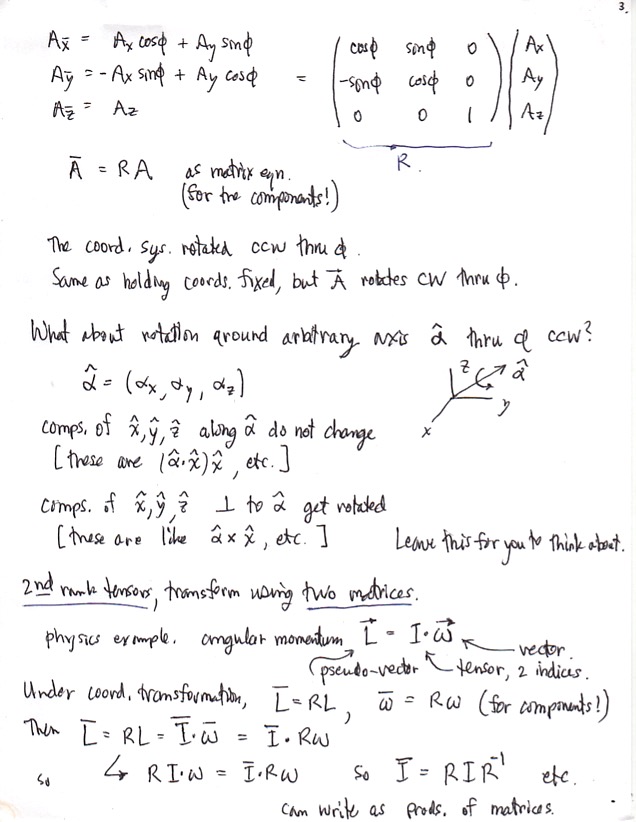 3.
A_x̄ = A_x cosϕ + A_y sinϕ
A_ȳ = -A_x sinϕ + A_y cosϕ = ( cosϕ sinϕ 0 ; -sinϕ cosϕ 0 ; 0 0 1 ) ( A_x ; A_y ; A_z )
A_z̄ = A_z
R.
Ā = R A as matrix eqn.
(for the components!)
The coord. sys. rotated ccw thru ϕ.
Same as holding coords. fixed, but Ā rotates CW thru ϕ.
What about rotation around arbitrary axis α̂ thru φ ccw?
α̂ = (α_x, α_y, α_z)
z α̂
y
x
comps. of x̂, ŷ, ẑ along α̂ do not change
[these are (α̂·x̂)x̂, etc.]
comps. of x̂, ŷ, ẑ ⊥ to α̂ get rotated
[these are like α̂ × x̂, etc.] Leave this for you to think about.
2nd rank tensors, transform using two matrices.
physics example. angular momentum L⃗ = I·ω⃗ vector.
pseudo-vector tensor, 2 indices.
Under coord. transformation, L̄ = RL, ω̄ = Rω (for components!)
Then L̄ = RL = Ī·ω̄ = Ī·Rω
so ↳ R I·ω = Ī·Rω so Ī = R I R⁻¹ etc.
can write as prods. of matrices.